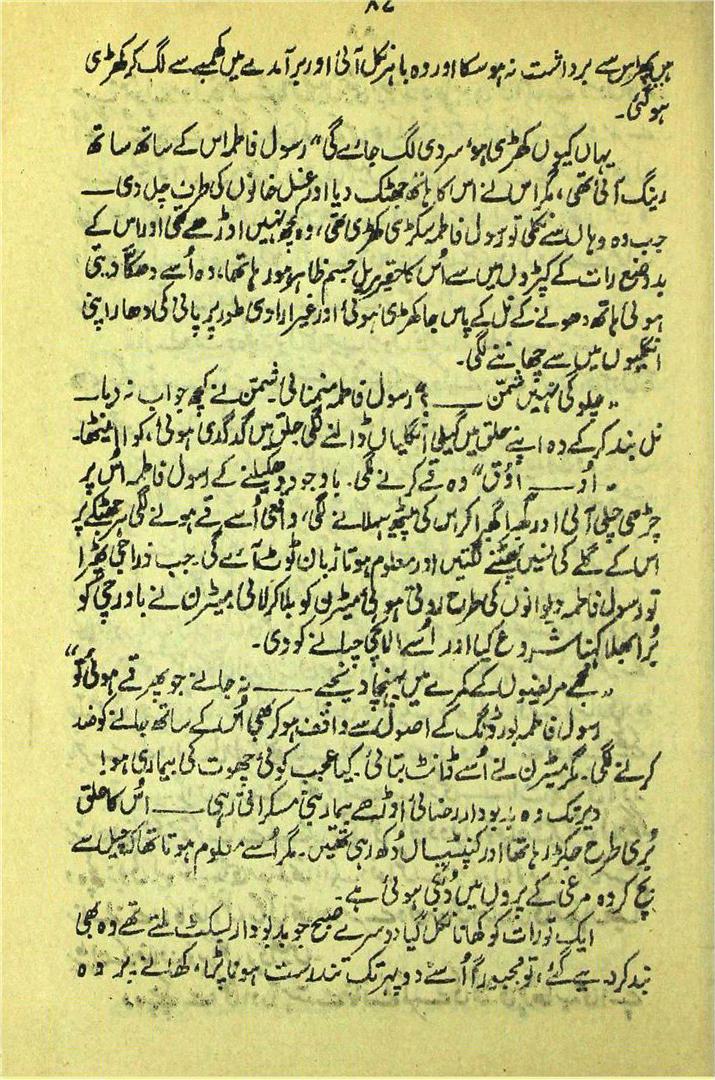 ۸۷
ہیں پھر اس سے برداشت نہ ہو سکا اور وہ باہر نکل آئی اور برآمدے میں کھمبے سے لگ کر کھڑی
ہو گئی۔
یہاں کیوں کھڑی ہو، سردی لگ جائے گی“ رسول فاطمہ اس کے ساتھ ساتھ
رینگ آئی تھی، مگر اس نے اس کا ہاتھ جھٹک دیا اور غسل خانوں کی طرف چل دی۔
جب وہ وہاں سے نکلی تو رسول فاطمہ سکڑی کھڑی تھی، وہ کچھ نہیں اوڑھے تھی اور اس کے
بدوضع رات کے کپڑوں میں سے اُس کا حقیر جسم ظاہر ہو رہا تھا، وہ اُسے دھکا دیتی
ہوئی ہاتھ دھونے کے نل کے پاس جا کھڑی ہوئی اور غیر ارادی طور پر پانی کی دھار اپنی
انگلیوں میں سے چھاننے لگی۔
”چلو گی نہیں شمّن ——؟“ رسول فاطمہ منمنائی۔ شمّن نے کچھ جواب نہ دیا۔
نل بند کر کے وہ اپنے حلق میں گیلی انگلیاں ڈالنے لگی حلق میں گدگدی ہوئی، کوا اینٹھا۔
”اُو —— اُوُق“ وہ قے کرنے لگی۔ باوجود دھکیلنے کے رسول فاطمہ اُس پر
چڑھی چلی آئی اور گھبرا گھبرا کر اس کی پیٹھ سہلانے لگی، واقعی اُسے قے ہونے لگی ہر جھٹکے پر
اس کے گلے کی نسیں پھٹنے لگتیں اور معلوم ہوتا زبان ٹوٹ آئے گی۔ جب ذرا جی ٹھہرا
تو رسول فاطمہ دیوانوں کی طرح روتی ہوئی میٹرن کو بلا کر لائی۔ میٹرن نے باورچی کو
بُرا بھلا کہنا شروع کیا اور اُسے الائچی چبانے کو دی۔
”مجھے مریضوں کے کمرے میں پہنچا دیجئے —— نہ جانے جو پھر قے ہوئی تو“
رسول فاطمہ بورڈنگ کے اصول سے واقف ہو کر بھی اُس کے ساتھ جانے کو ضد
کرنے لگی۔ مگر میٹرن نے اُسے ڈانٹ بتائی۔ کیا عجب کوئی چھوت کی بیماری ہو!
دیر تک وہ بدبودار رضائی اوڑھے بیمار بنی مسکراتی رہی —— اُس کا حلق
بُری طرح جکڑ رہا تھا اور کنپٹیاں دُکھ رہی تھیں۔ مگر اُسے معلوم ہوتا تھا کہ چیل سے
بچ کر وہ مرغی کے پروں میں دُبکی ہوئی ہے۔
ایک تو رات کو کھانا نکل گیا دوسرے صبح جو بدبودار بسکٹ ملتے تھے وہ بھی
بند کر دیے گئے، تو مجبوراً اُسے دوپہر تک تندرست ہونا پڑا، کھانے پر وہ